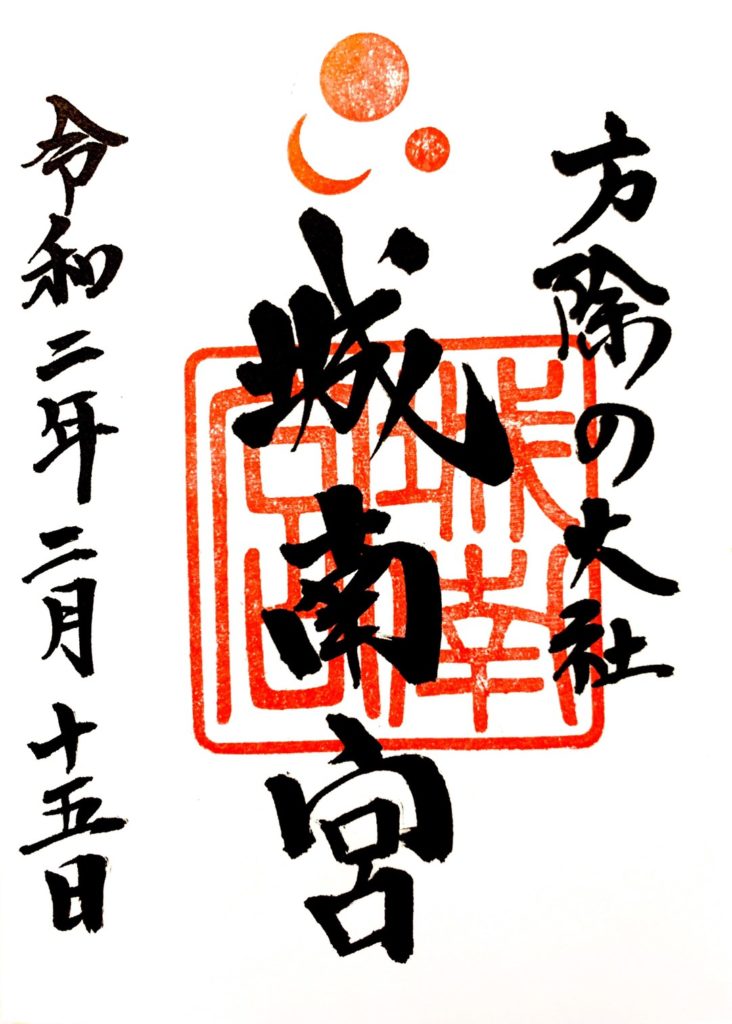 方除の大社
城南宮
令和二年二月十五日
城南宮